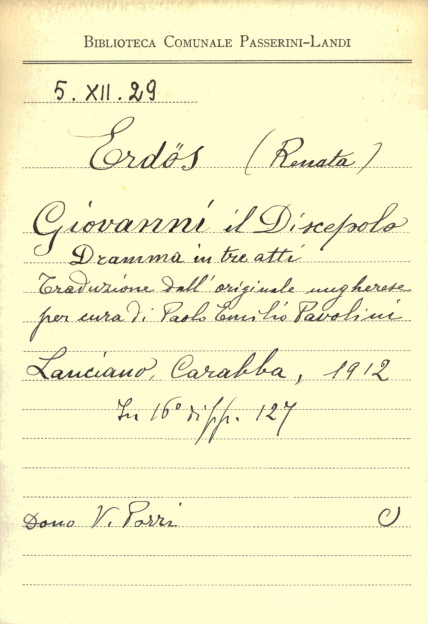 BIBLIOTECA COMUNALE PASSERINI-LANDI
5. XII. 29
Erdös (Renata)
Giovanni il Discepolo
Dramma in tre atti
Traduzione dall'originale ungherese
per cura di Paolo Emilio Pavolini
Lanciano, Carabba, 1912
In 16° di pp. 127
Dono V. Porri